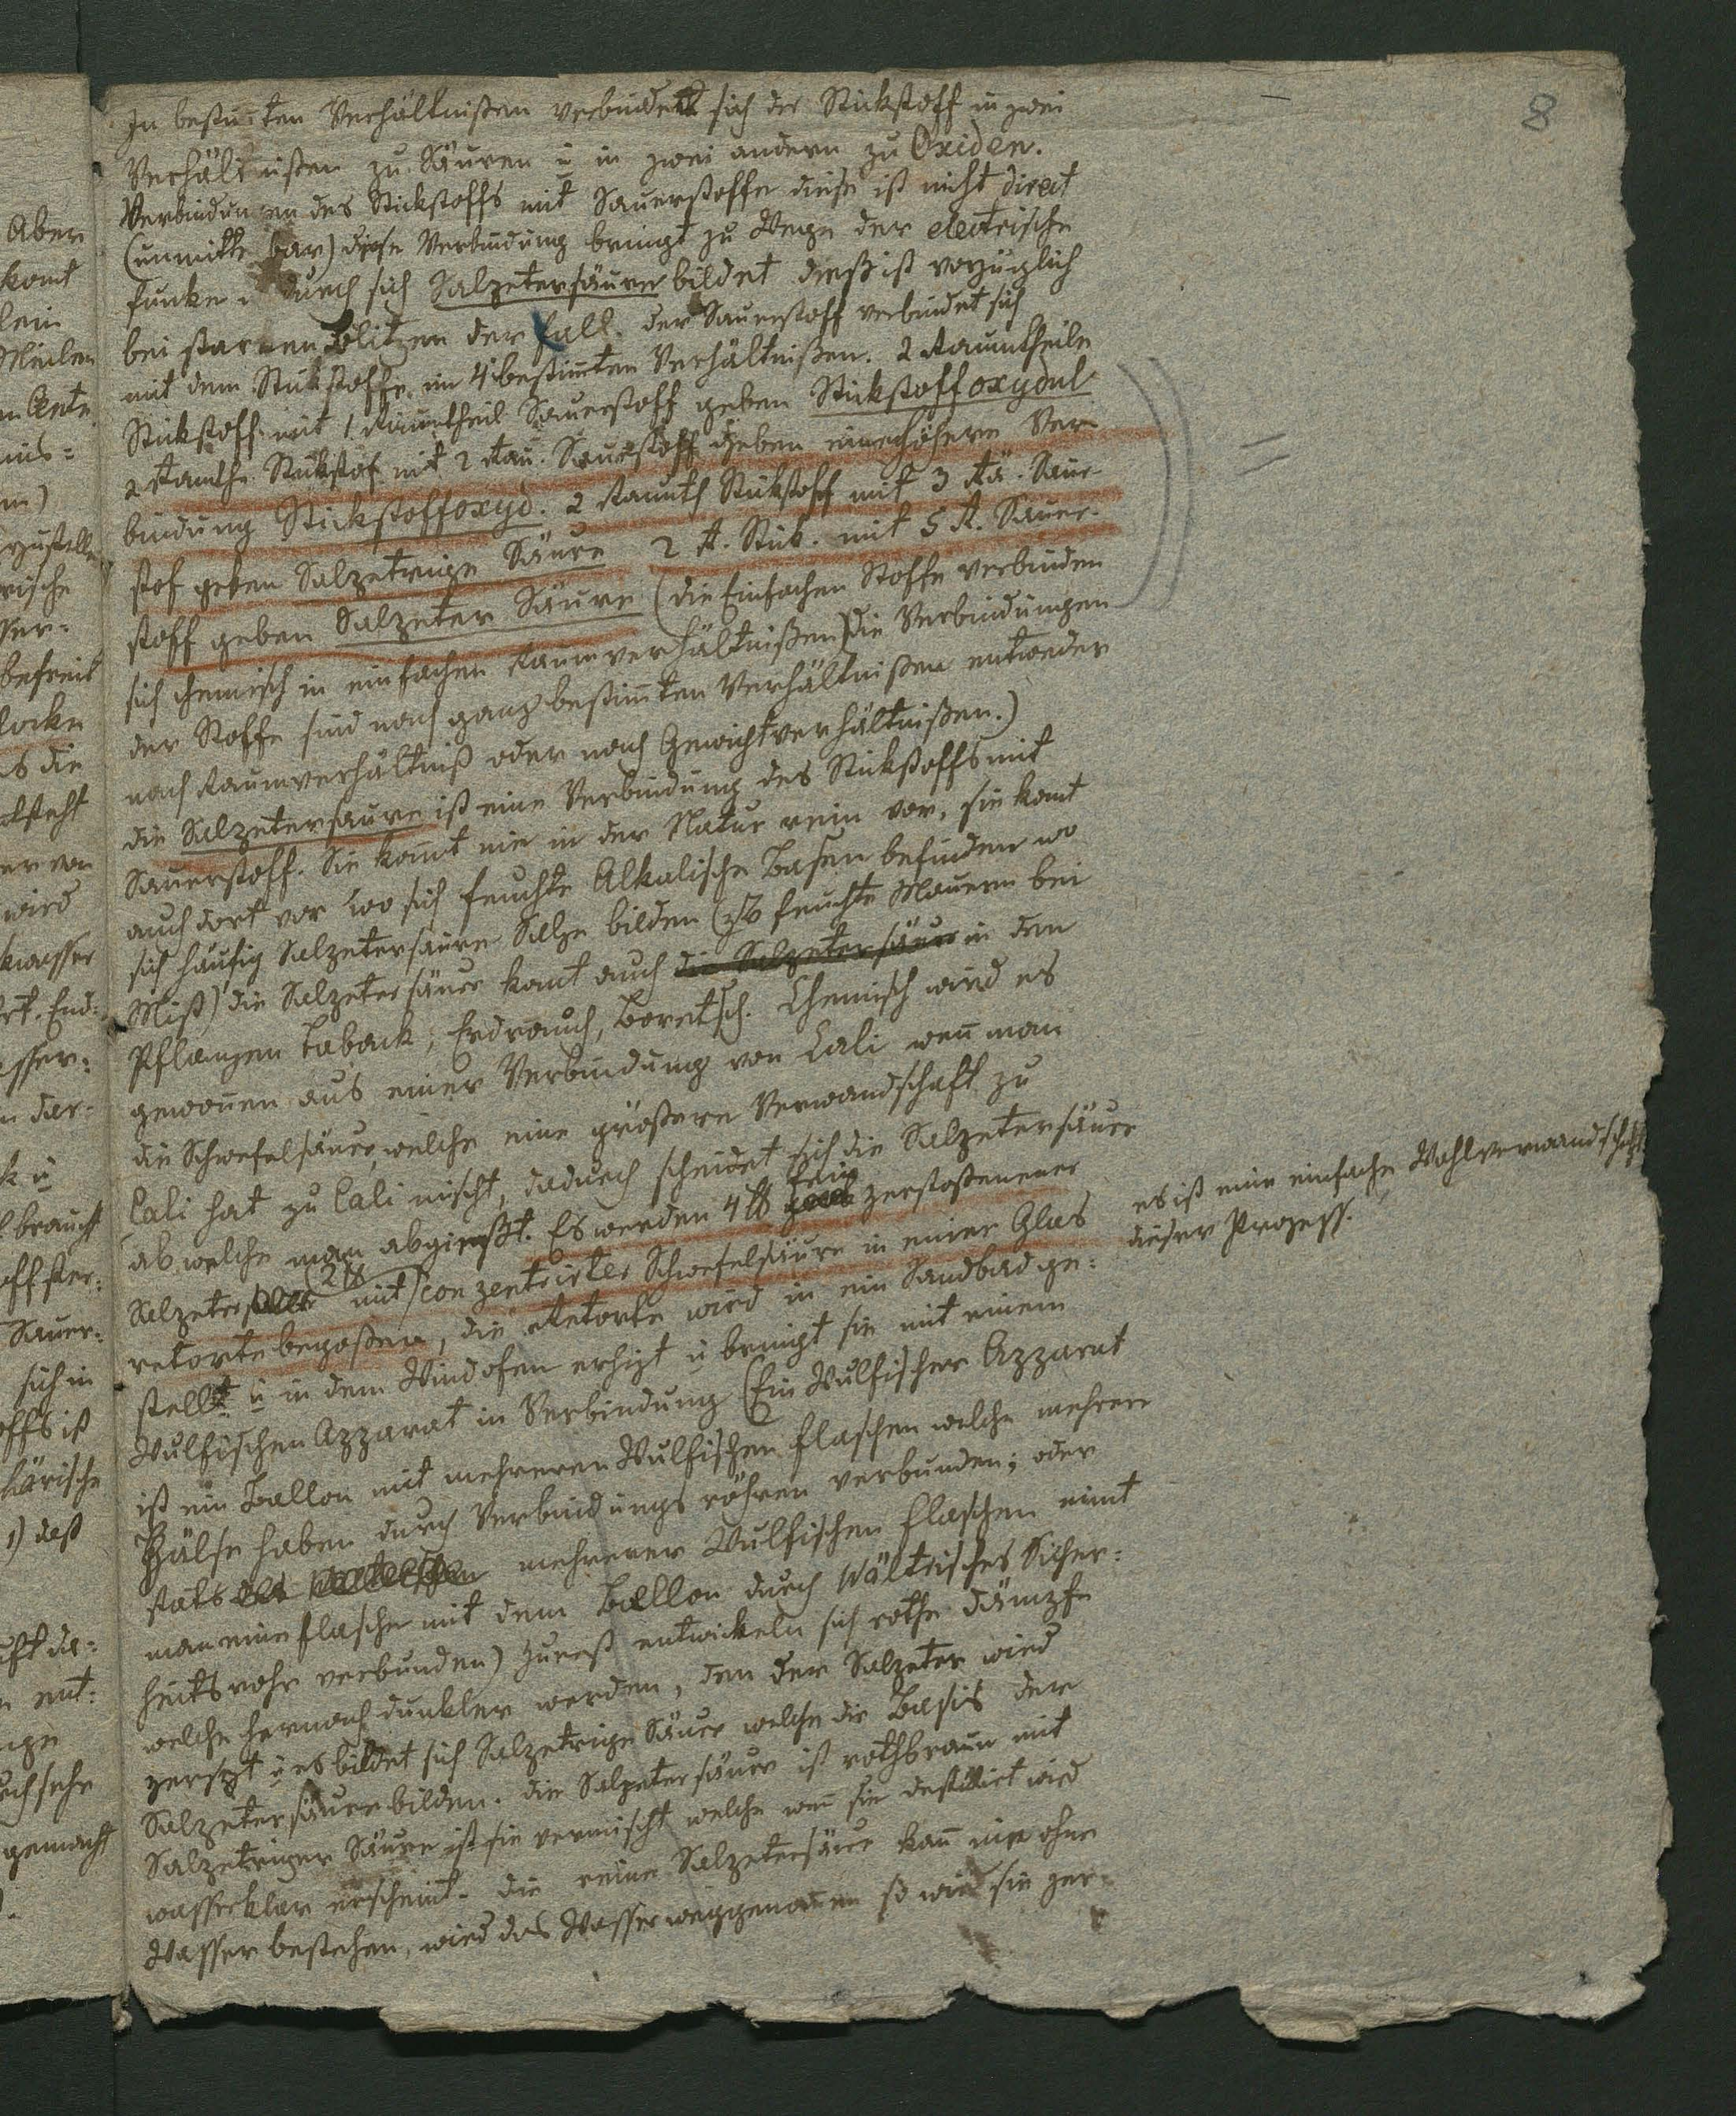 8
In bestim̄ten Verhältnißen verbindet sich der Stickstoff in zwei
Verhältnißen zu Säuren u in zwei andern zu Oxiden.
Verbindungen des Stickstoffs mit Sauerstoffe diese ist nicht direct
(unmittelbar) diese Verbindung bringt zu Wege der electrische
Funken durch sich Salzetersäure bildet dieß ist vorzüglich
bei starken Blitzen der Fall. der Sauerstoff verbindet sich
mit dem Stickstoffe in 4 bestim̄ten Verhältnißen. 2 Raumtheile
Stickstoff mit 1 Raumtheil Sauerstoff geben Stickstoffoxydul
2 Raumthe Stickstof mit 2 Rau. Sauerstoff geben eine höhere Ver
bindung Stickstoffoxyd. 2 Raumth Stickstoff mit 3 Rä. Sauer
stof geben Salzetrige Säure 2 R. Stick. mit 5 R. Sauer-
stoff geben Salzeter Säure (die Einfachen Stoffe verbinden
sich chemisch in einfachen Raumverhältnißen) die Verbindungen
der Stoffe sind nach ganz bestim̄ten Verhältnißen entweder
nach Raumverhältniß oder nach Gewichtverhältnißen.)
die Salzetersäure ist eine Verbindung des Stickstoffs mit
Sauerstoff. Sie kom̄t nie in der Natur rein vor, sie komt
auch dort vor wo sich feuchte Alkalische Basen befinden wo
sich häufig Salzetersäure Salze bilden (zB feuchte Mauern bei
Mist) die Salzetersäure komt auch die Salzetersäure in den
Pflanzen Taback, Erdrauch, Boretsch. Chemisch wird es
gewonnen aus einer Verbindung von Cali wen̄ man
die Schwefelsäure, welche eine größere Verwandschaft zu
Cali hat zu Cali mischt, dadurch scheidet sich die Salzetersäure
ab welche man abgießt. Es werden 4 ℔ fein zerstoßenener
Salzeter (2℔ mit) conzentrirter Schwefelsäure in einer Glas
retorte begoßen, die Retorte wird in ein Sandbad ge:
stellt u in dem Windofen erhizt u bringt sie mit einem
Wulfischen Azzarat in Verbindung (Ein Wulfischer Azzarat
ist ein Ballon mit mehreren Wulfischen Flaschen welche mehrere
Hälse haben durch Verbindungs röhren verbunden; oder
stats mehrerer Wulfischen Flaschen nimt
man eine Flasche mit dem Ballon durch Wältrisches Sicher:
heitsrohr verbunden) zuerst entwickeln sich rothe Dämzfe
welche hernach dunkler werden, den der Salzeter wird
zersezt u es bildet sich Salzetrige Säure welche die Basis der
Salzetersäure bilden. die Salpetersäure ist rothbraun mit
Salzetriger Säure ist sie vermischt welche wen̄ sie destillirt wird
wasserklar erscheint. die reine Salzetersäure kan̄ nie ohne
Wasser bestehen, wird das Wasser weggenom̄en so wird sie zer
es ist eine einfache Wahlverwandschaft
dieser Prozess.